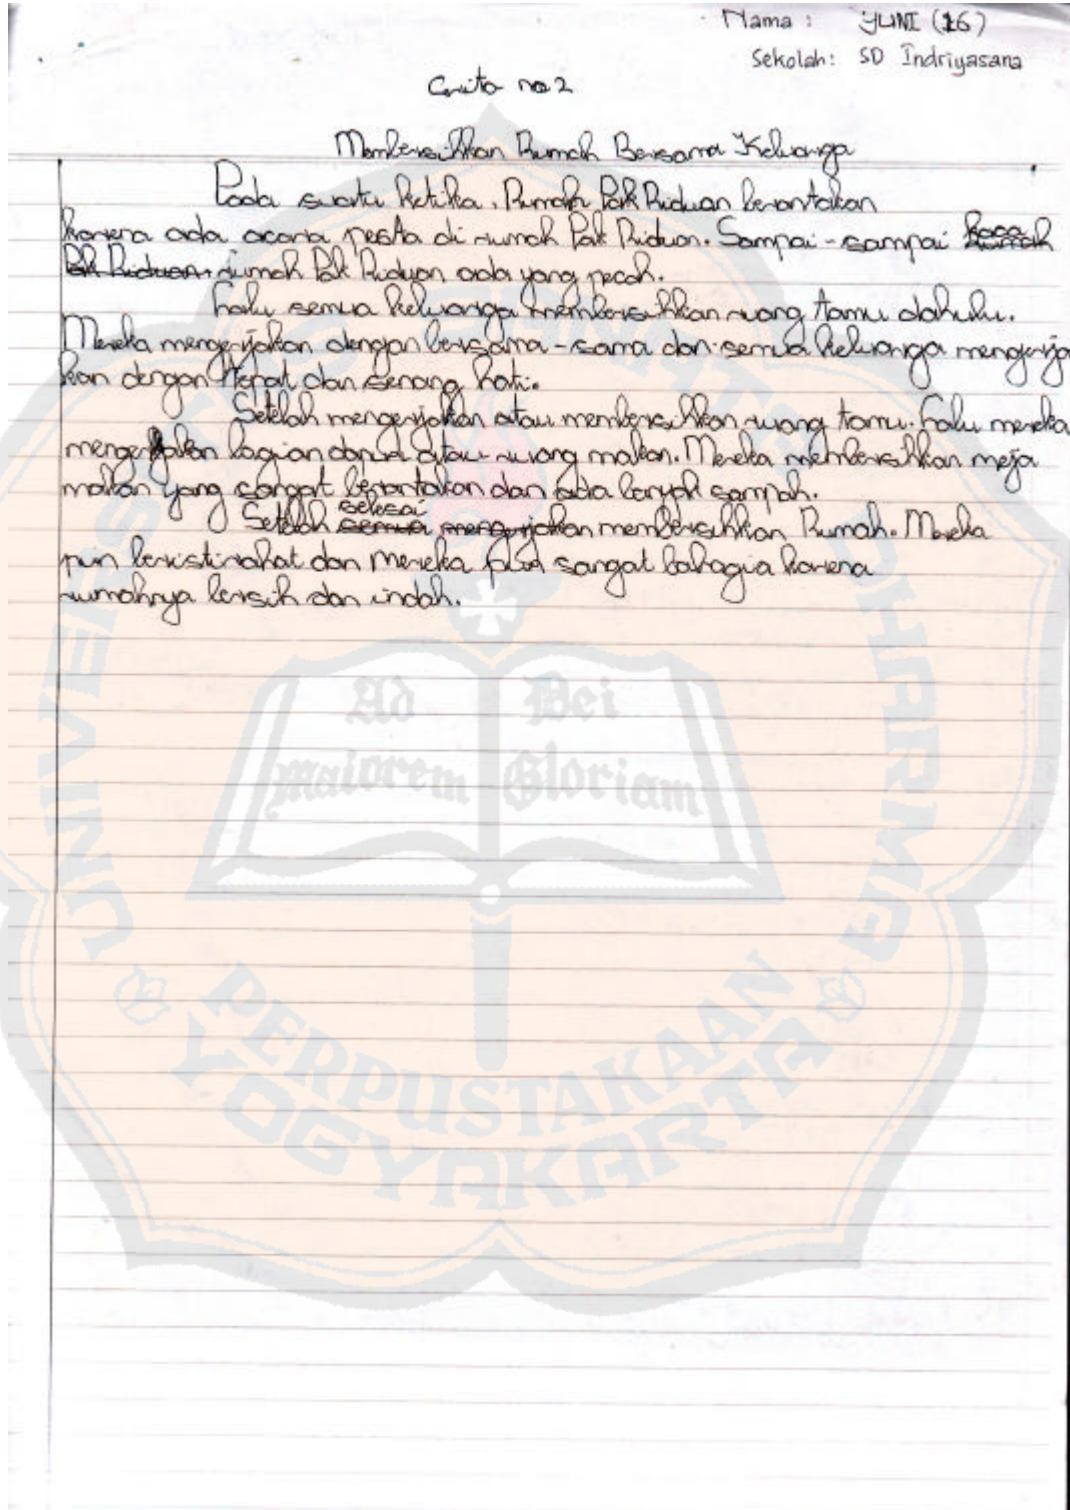 Nama : YUNI (16)
Sekolah: SD Indriyasana
Cerita no 2
Membersihkan Rumah Bersama Keluarga
Pada suatu ketika, Rumah Pak Riduan berantakan
karena ada acara pesta di rumah Pak Riduan. Sampai-sampai kaca rumah
Pak Riduan. rumah Pak Riduan ada yang pecah.
Lalu semua keluarga membersihkan ruang tamu dahulu.
Mereka mengerjakan dengan bersama-sama dan semua keluarga mengerja
kan dengan tepat dan senang hati.
Setelah mengerjakan atau membersihkan ruang tamu. Lalu mereka
mengerjakan bagian dapur atau ruang makan. Mereka membersihkan meja
makan yang sangat berantakan dan ada banyak sampah.
selesai
Setelah semua mengerjakan membersihkan Rumah. Mereka
pun beristirahat dan mereka pun sangat bahagia karena
rumahnya bersih dan indah.
Ad Dei
maiorem Gloriam
UNIVERSITAS SANATA DHARMA
PERPUSTAKAAN
YOGYAKARTA